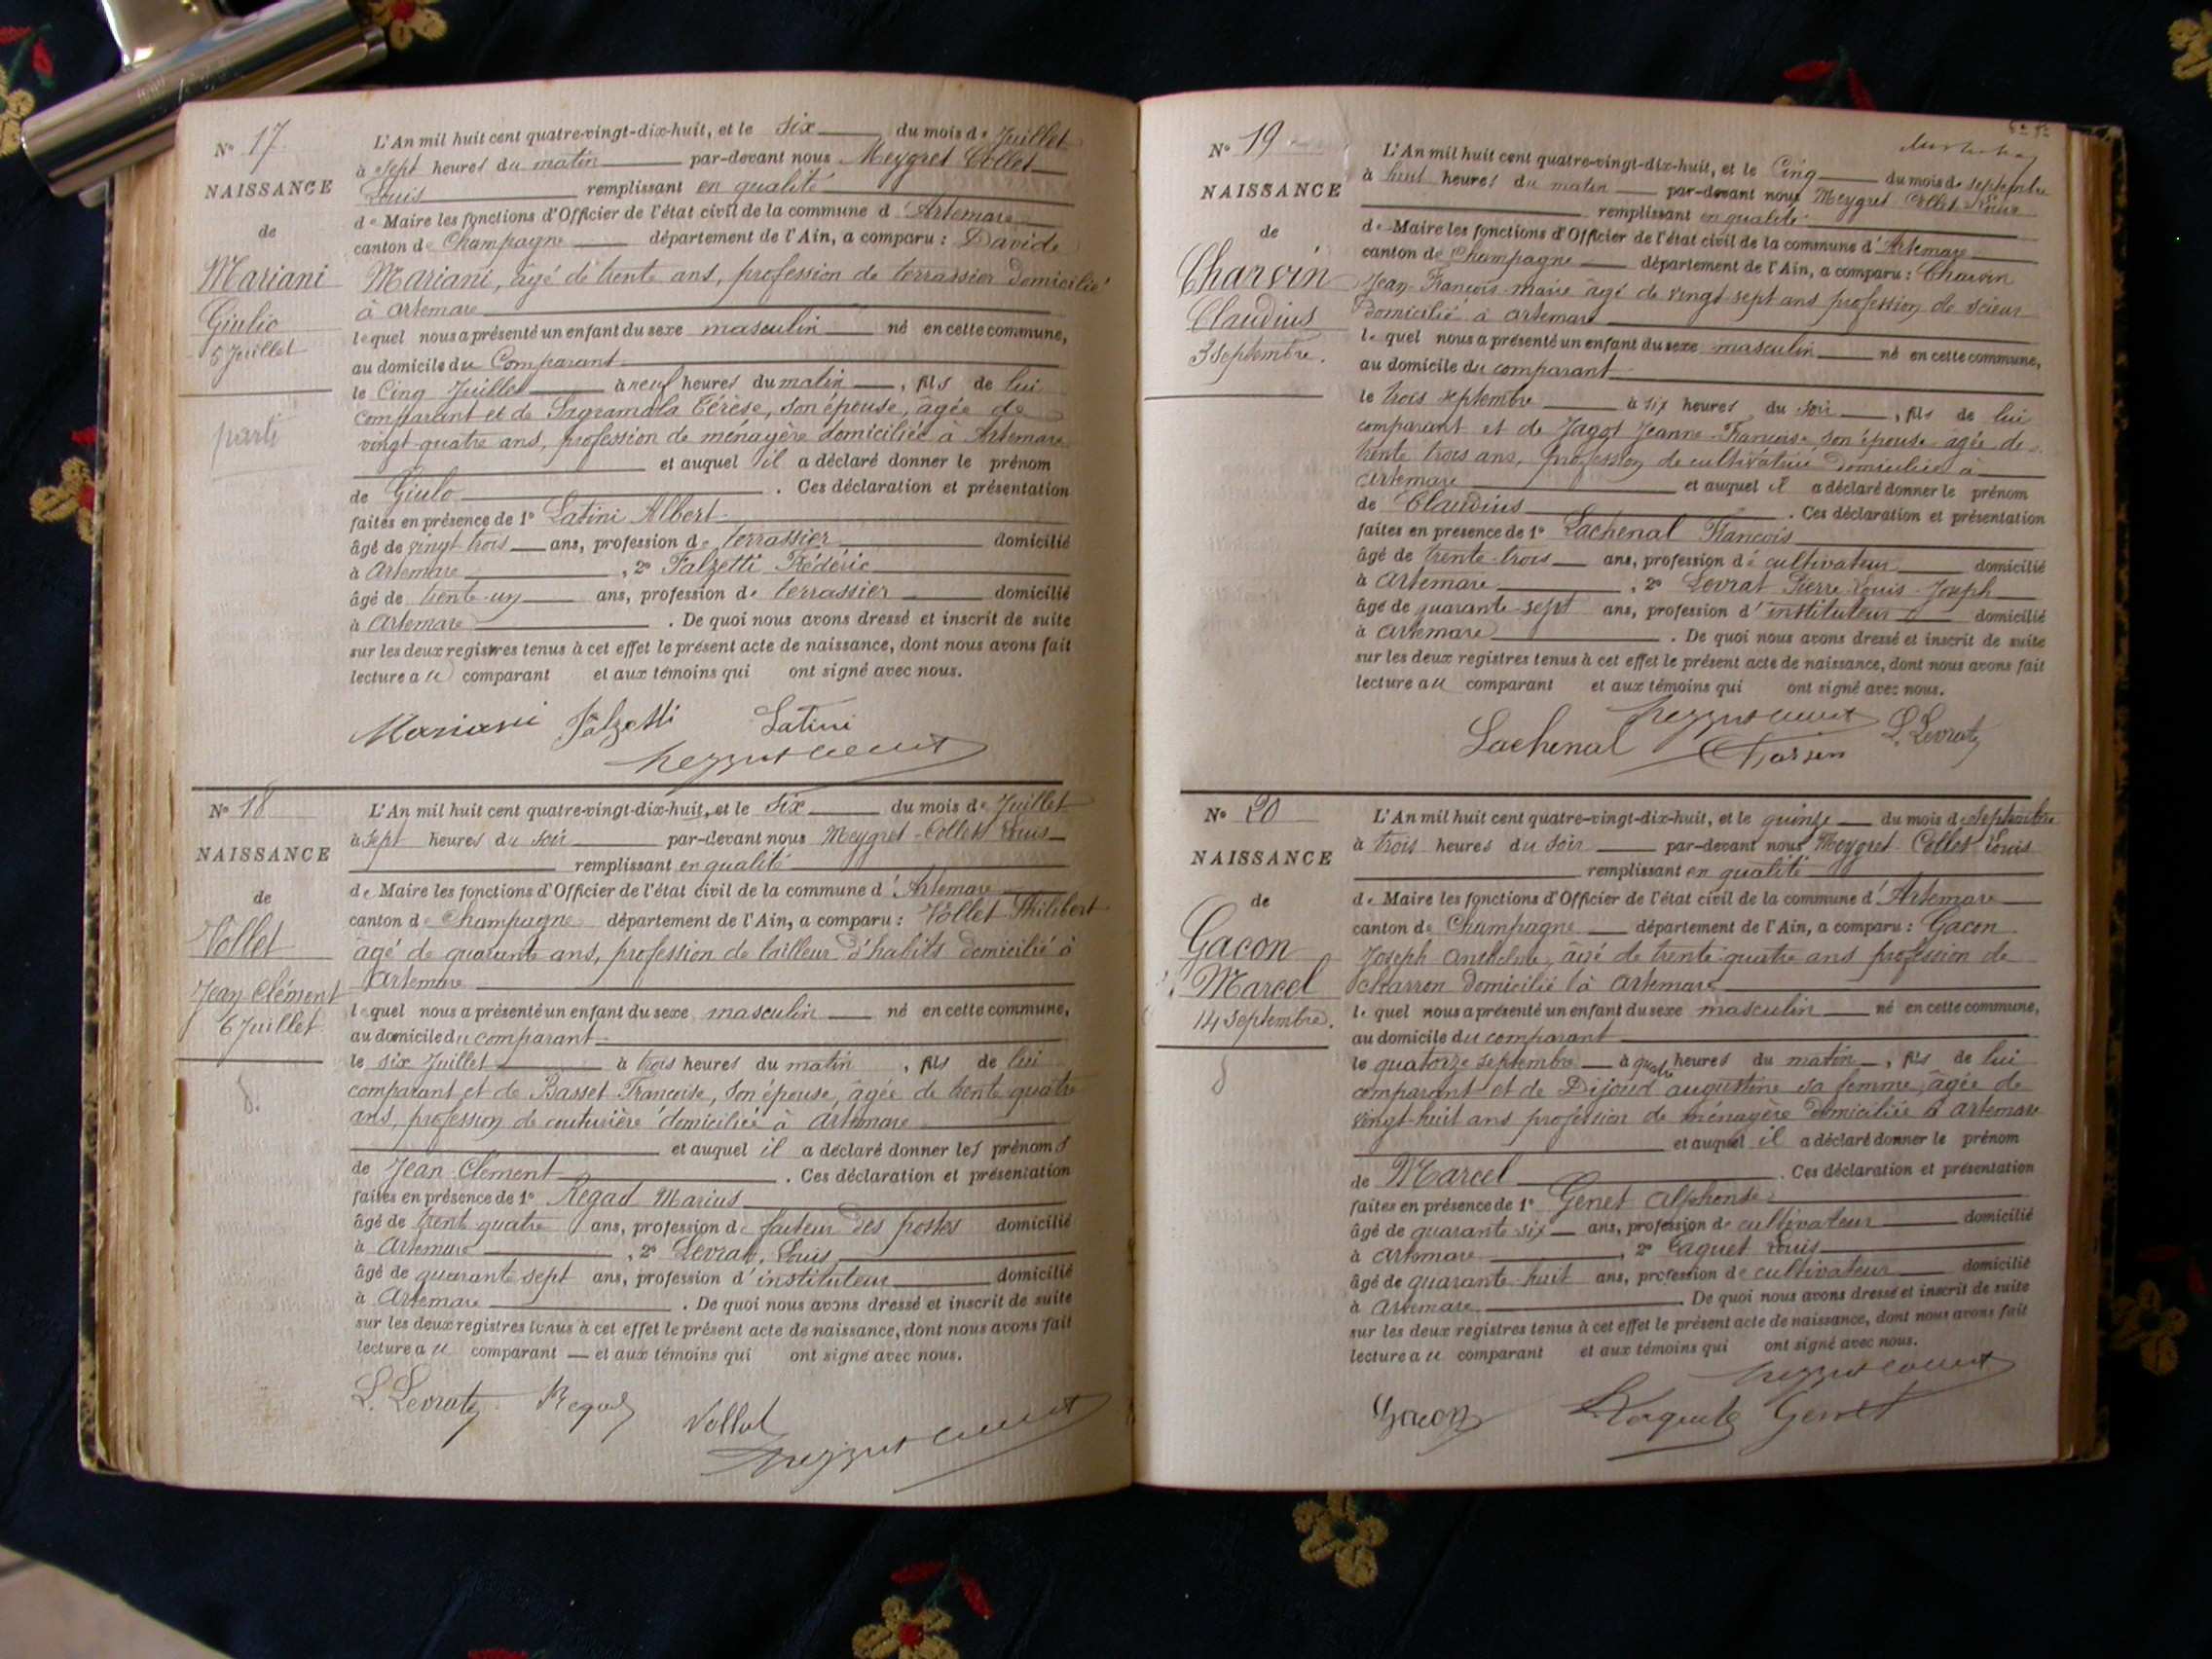 N° 17
NAISSANCE
de
Mariani
Giulio
5 Juillet
parti
L'An mil huit cent quatre-vingt-dix-huit, et le six du mois de Juillet
à sept heures du matin par-devant nous Meygret Collet
Louis remplissant en qualité
de Maire les fonctions d'Officier de l'état civil de la commune d'Artemare
canton de Champagne département de l'Ain, a comparu : Davide
Mariani, âgé de trente ans, profession de terrassier domicilié
à Artemare
lequel nous a présenté un enfant du sexe masculin né en cette commune,
au domicile du Comparant
le Cinq Juillet à neuf heures du matin, fils de lui
comparant et de Sagramola Térèse, son épouse, âgée de
vingt-quatre ans, profession de ménagère domiciliée à Artemare
et auquel il a déclaré donner le prénom
de Giulo. Ces déclaration et présentation
faites en présence de 1° Latini Albert
âgé de vingt trois ans, profession de terrassier domicilié
à Artemare, 2° Falzetti Frédéric
âgé de trente-un ans, profession de terrassier domicilié
à Artemare. De quoi nous avons dressé et inscrit de suite
sur les deux registres tenus à cet effet le présent acte de naissance, dont nous avons fait
lecture au comparant et aux témoins qui ont signé avec nous.
Mariani Falzetti Latini
N° 18
NAISSANCE
de
Vollet
Jean Clément
6 Juillet
d.
L'An mil huit cent quatre-vingt-dix-huit, et le six du mois de Juillet
à sept heures du soir par-devant nous Meygret-Collet Louis
remplissant en qualité
de Maire les fonctions d'Officier de l'état civil de la commune d'Artemare
canton de Champagne département de l'Ain, a comparu : Vollet Philibert
âgé de quarante ans, profession de tailleur d'habits domicilié à
Artemare
lequel nous a présenté un enfant du sexe masculin né en cette commune,
au domicile du comparant
le six Juillet à trois heures du matin, fils de lui
comparant et de Basset Françoise, son épouse, âgée de trente quatre
ans, profession de couturière domiciliée à Artemare
et auquel il a déclaré donner les prénoms
de Jean Clément. Ces déclaration et présentation
faites en présence de 1° Regad Marius
âgé de trent quatre ans, profession de facteur des postes domicilié
à Artemare, 2° Levrat, Louis
âgé de quarante sept ans, profession d'instituteur domicilié
à Artemare. De quoi nous avons dressé et inscrit de suite
sur les deux registres tenus à cet effet le présent acte de naissance, dont nous avons fait
lecture au comparant et aux témoins qui ont signé avec nous.
L. Levrat Regad Vollet
N° 19
NAISSANCE
de
Charvin
Claudius
3 septembre.
L'An mil huit cent quatre-vingt-dix-huit, et le Cinq du mois de septembre
à huit heures du matin par-devant nous Meygret Collet Louis
remplissant en qualité
de Maire les fonctions d'Officier de l'état civil de la commune d'Artemare
canton de Champagne département de l'Ain, a comparu : Charvin
Jean-François-marie âgé de vingt-sept ans profession de scieur
domicilié à Artemare
lequel nous a présenté un enfant du sexe masculin né en cette commune,
au domicile du comparant
le trois septembre à six heures du soir, fils de lui
comparant et de Jagot Jeanne-Françoise son épouse âgée de
trente trois ans, profession de cultivatrice domiciliée à
Artemare et auquel il a déclaré donner le prénom
de Claudius. Ces déclaration et présentation
faites en présence de 1° Lachenal François
âgé de trente-trois ans, profession de cultivateur domicilié
à Artemare, 2° Levrat Pierre Louis Joseph
âgé de quarante-sept ans, profession d'instituteur domicilié
à Artemare. De quoi nous avons dressé et inscrit de suite
sur les deux registres tenus à cet effet le présent acte de naissance, dont nous avons fait
lecture au comparant et aux témoins qui ont signé avec nous.
Lachenal Charvin L. Levrat
N° 20
NAISSANCE
de
Gacon
Marcel
14 septembre.
d
L'An mil huit cent quatre-vingt-dix-huit, et le quinze du mois de septembre
à trois heures du soir par-devant nous Meygret Collet Louis
remplissant en qualité
de Maire les fonctions d'Officier de l'état civil de la commune d'Artemare
canton de Champagne département de l'Ain, a comparu : Gacon
Joseph Anthelme, âgé de trente-quatre ans profession de
charron domicilié à Artemare
lequel nous a présenté un enfant du sexe masculin né en cette commune,
au domicile du comparant
le quatorze septembre à quatre heures du matin, fils de lui
comparant et de Dijoud augustine sa femme, âgée de
vingt-huit ans profession de ménagère domiciliée à Artemare
et auquel il a déclaré donner le prénom
de Marcel. Ces déclaration et présentation
faites en présence de 1° Genet Alphonse
âgé de quarante-six ans, profession de cultivateur domicilié
à Artemare, 2° Laquet Louis
âgé de quarante huit ans, profession de cultivateur domicilié
à Artemare. De quoi nous avons dressé et inscrit de suite
sur les deux registres tenus à cet effet le présent acte de naissance, dont nous avons fait
lecture au comparant et aux témoins qui ont signé avec nous.
Gacon Genet